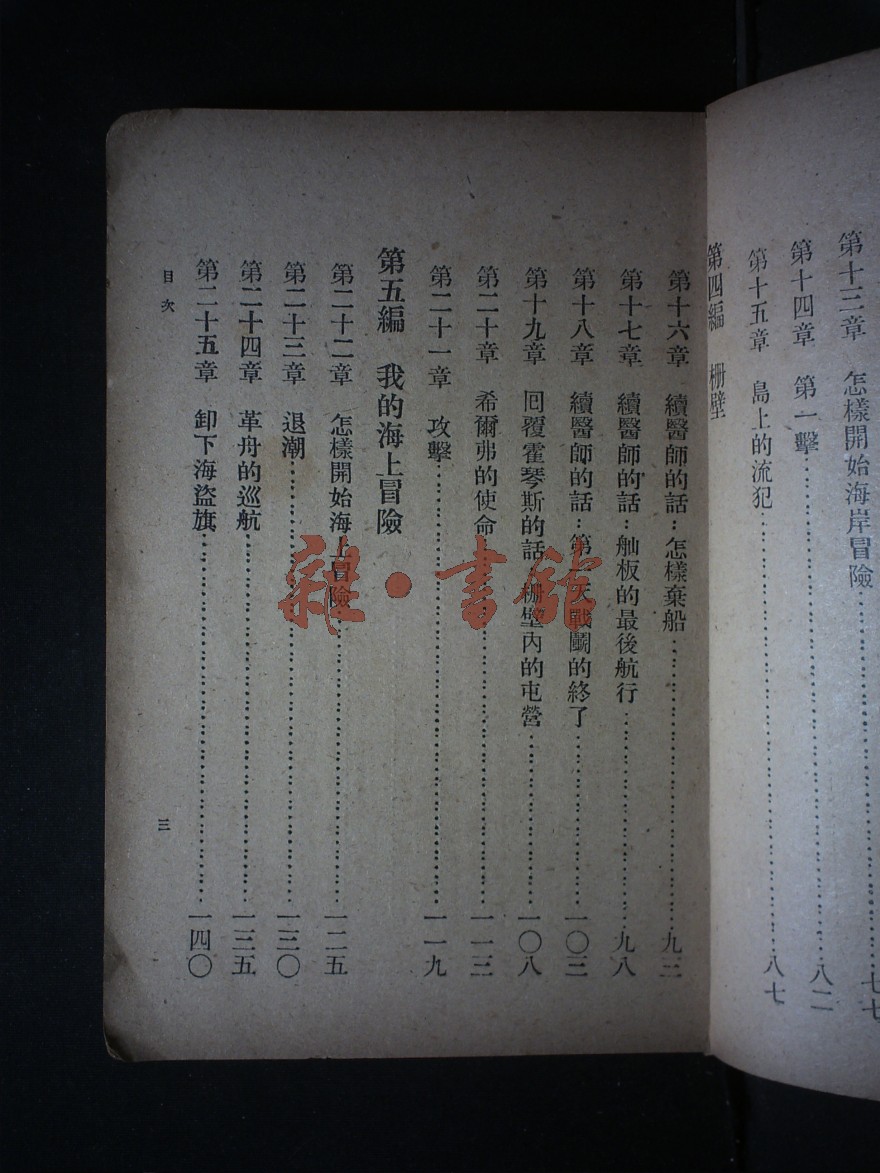 第十三章 怎樣開始海岸冒險……七七
第十四章 第一擊……八二
第十五章 島上的流犯……八七
第四編 柵壁
第十六章 續醫師的話：怎樣棄船……九三
第十七章 續醫師的話：舢板的最後航行……九八
第十八章 續醫師的話：第一天戰鬭的終了……一〇三
第十九章 囘覆霍琴斯的話：柵壁內的屯營……一〇八
第二十章 希爾弗的使命……一一三
第二十一章 攻擊……一一九
第五編 我的海上冒險
第二十二章 怎樣開始海上冒險……一二五
第二十三章 退潮……一三〇
第二十四章 革舟的巡航……一三五
第二十五章 卸下海盜旗……一四〇
目次
三
雜·書館